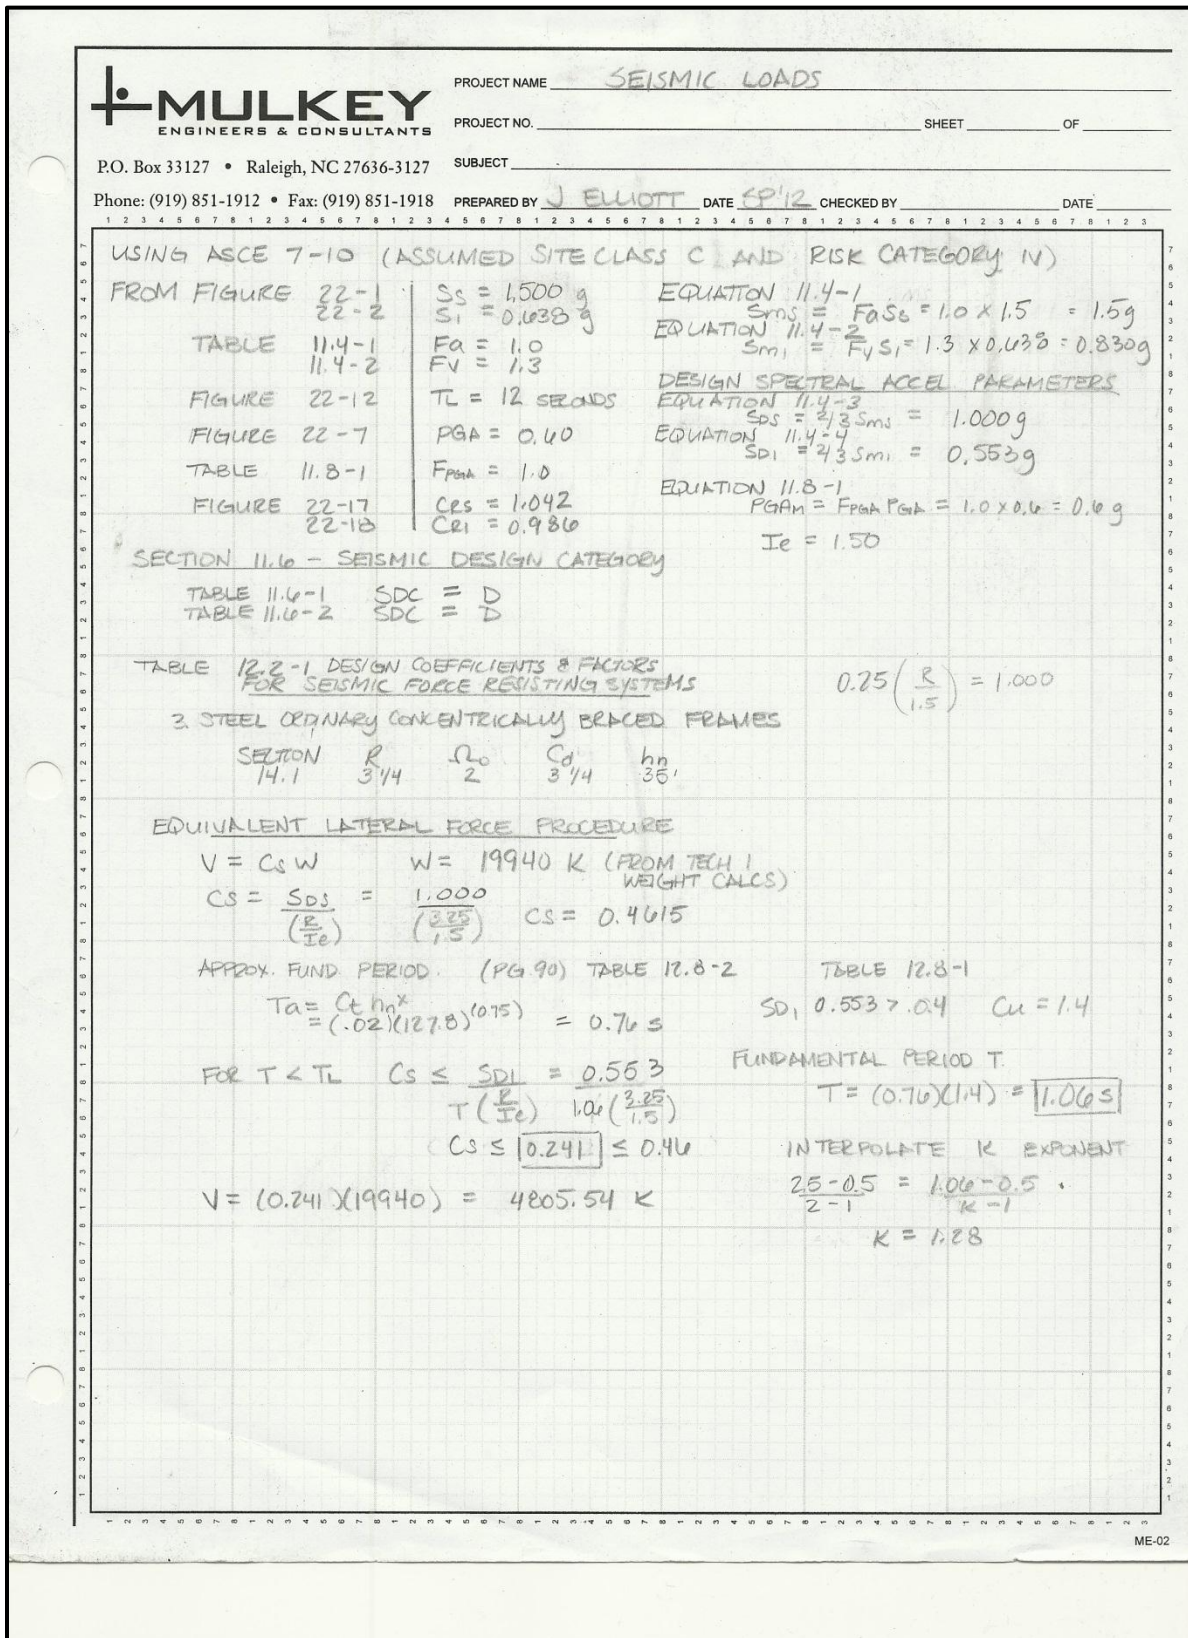 MULKEY
ENGINEERS & CONSULTANTS
P.O. Box 33127 • Raleigh, NC 27636-3127
Phone: (919) 851-1912 • Fax: (919) 851-1918
PROJECT NAME SEISMIC LOADS
PROJECT NO. SHEET OF
SUBJECT
PREPARED BY J ELLIOTT DATE SP'12 CHECKED BY DATE
USING ASCE 7-10 (ASSUMED SITE CLASS C AND RISK CATEGORY IV)
FROM FIGURE 22-1 Ss = 1.500 g
22-2 S1 = 0.638 g
TABLE 11.4-1 Fa = 1.0
11.4-2 FV = 1.3
FIGURE 22-12 TL = 12 SECONDS
FIGURE 22-7 PGA = 0.60
TABLE 11.8-1 FPGA = 1.0
FIGURE 22-17 CRS = 1.042
22-18 CR1 = 0.986
EQUATION 11.4-1
Sms = FaSs = 1.0 x 1.5 = 1.5g
EQUATION 11.4-2
Sm1 = FvS1 = 1.3 x 0.638 = 0.830g
DESIGN SPECTRAL ACCEL. PARAMETERS
EQUATION 11.4-3
SDS = 2/3 Sms = 1.000 g
EQUATION 11.4-4
SD1 = 2/3 Sm1 = 0.553g
EQUATION 11.8-1
PGAM = FPGA PGA = 1.0 x 0.6 = 0.6 g
Ie = 1.50
SECTION 11.6 - SEISMIC DESIGN CATEGORY
TABLE 11.6-1 SDC = D
TABLE 11.6-2 SDC = D
TABLE 12.2-1 DESIGN COEFFICIENTS & FACTORS
FOR SEISMIC FORCE RESISTING SYSTEMS
0.25 (R/1.5) = 1.000
3. STEEL ORDINARY CONCENTRICALLY BRACED FRAMES
SECTION R Ωo Cd hn
14.1 3 1/4 2 3 1/4 35'
EQUIVALENT LATERAL FORCE PROCEDURE
V = Cs W W = 19940 K (FROM TECH 1
WEIGHT CALCS)
CS = SDS/(R/Ie) = 1.000/(3.25/1.5) CS = 0.4615
APPROX. FUND. PERIOD. (PG. 90) TABLE 12.8-2
Ta = Ct hn^x
= (.02)(127.8)^(0.75) = 0.76 s
TABLE 12.8-1
SD1 0.553 > 0.4 Cu = 1.4
FOR T < TL Cs ≤ SD1/(T(R/Ie)) = 0.553/(1.06(3.25/1.5))
CS ≤ 0.241 ≤ 0.46
V = (0.241)(19940) = 4805.54 K
FUNDAMENTAL PERIOD T.
T = (0.76)(1.4) = 1.06 s
INTERPOLATE K EXPONENT
2.5-0.5/2-1 = 1.06-0.5/K-1
K = 1.28
ME-02